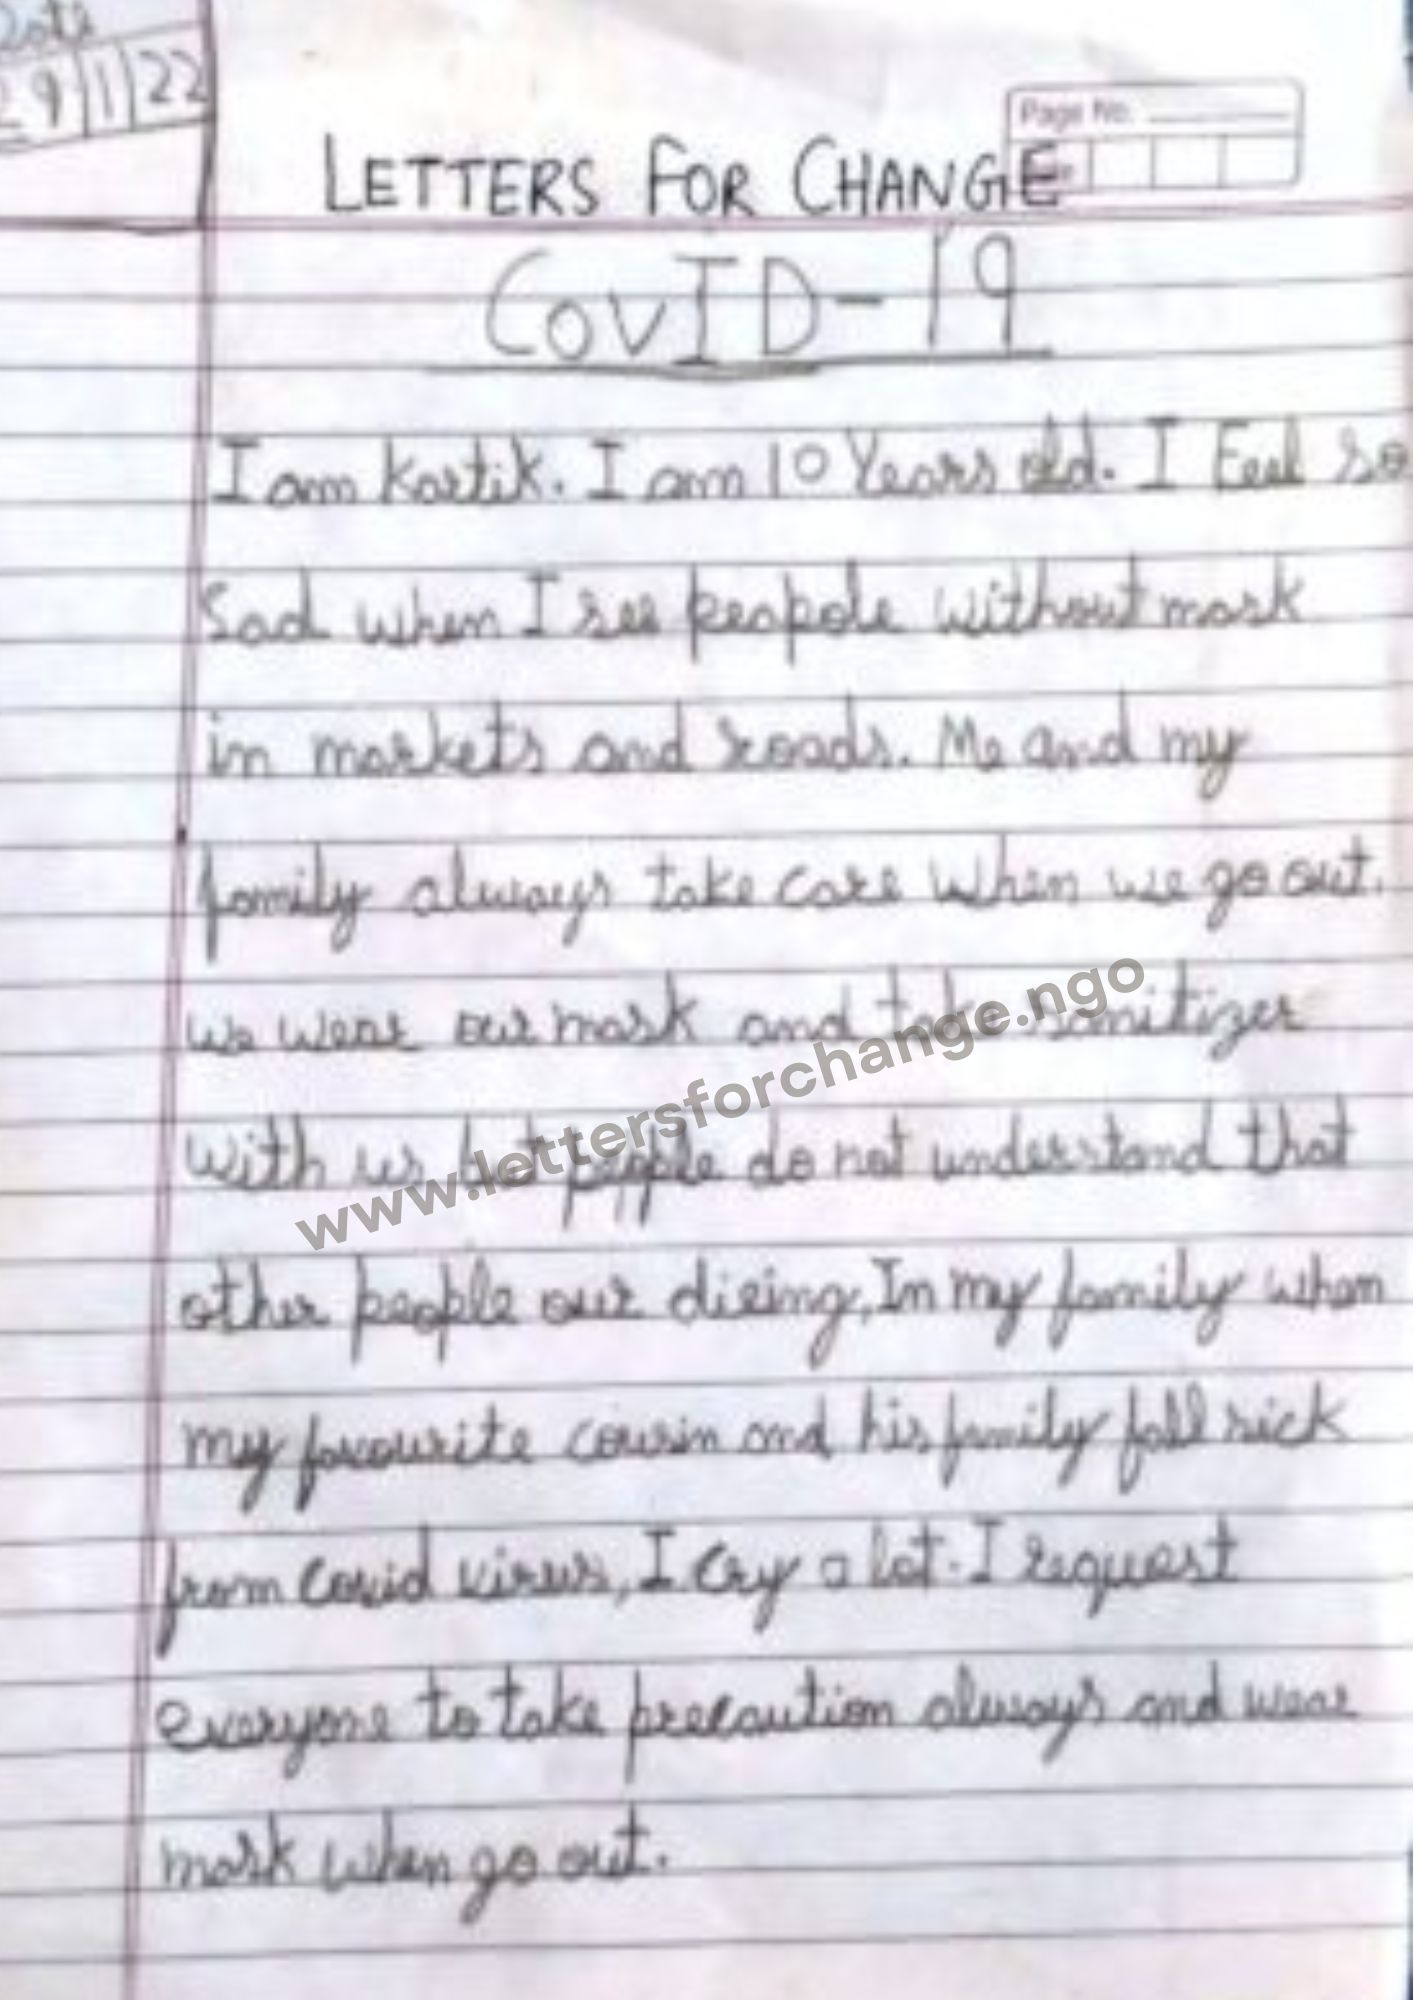 Date
29|1|22
Page No.
LETTERS FOR CHANGE
COVID-19
I am Kartik. I am 10 Years old. I Feel so
Sad when I see peapole without mask
in markets and roads. Me and my
family always take care when we go out.
we wear our mask and take sanitizer
with us but people do not understand that
other people our dieing, In my family when
my favourite cousin and his family fall sick
from covid virus, I cry a lot. I request
everyone to take precaution always and wear
mask when go out.
www.lettersforchange.ngo